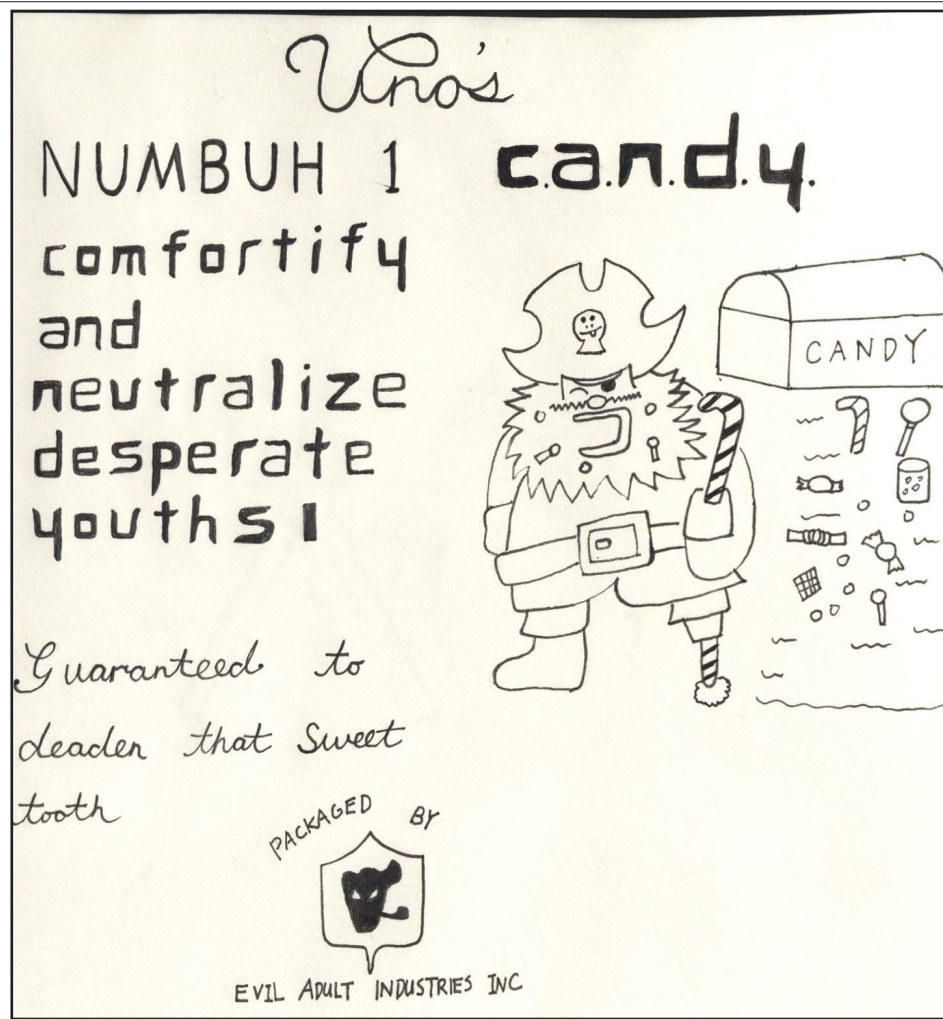 Uno's
NUMBUH 1 c.a.n.d.y.
comfortify
and
neutralize
desperate
youths 1
CANDY
Guaranteed to
deaden that Sweet
tooth
PACKAGED BY
EVIL ADULT INDUSTRIES INC